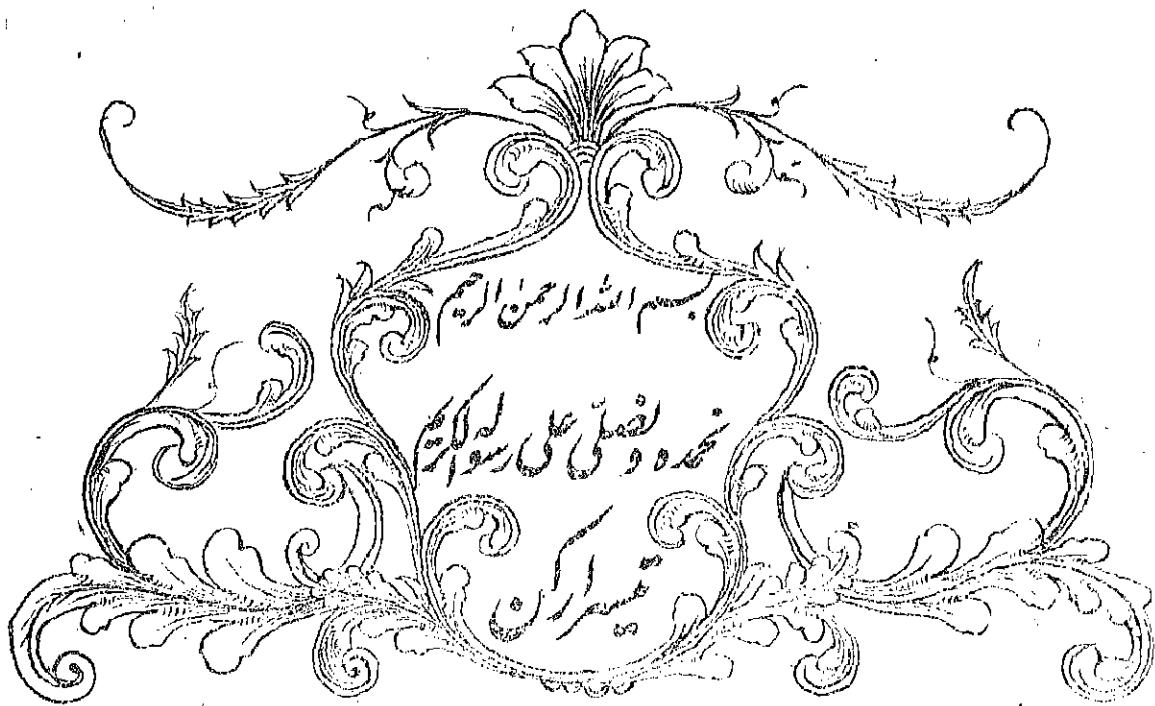 بسم الله الرحمن الرحیم
نحمده و نصلّی علی رسوله الکریم
تیسرا رکن